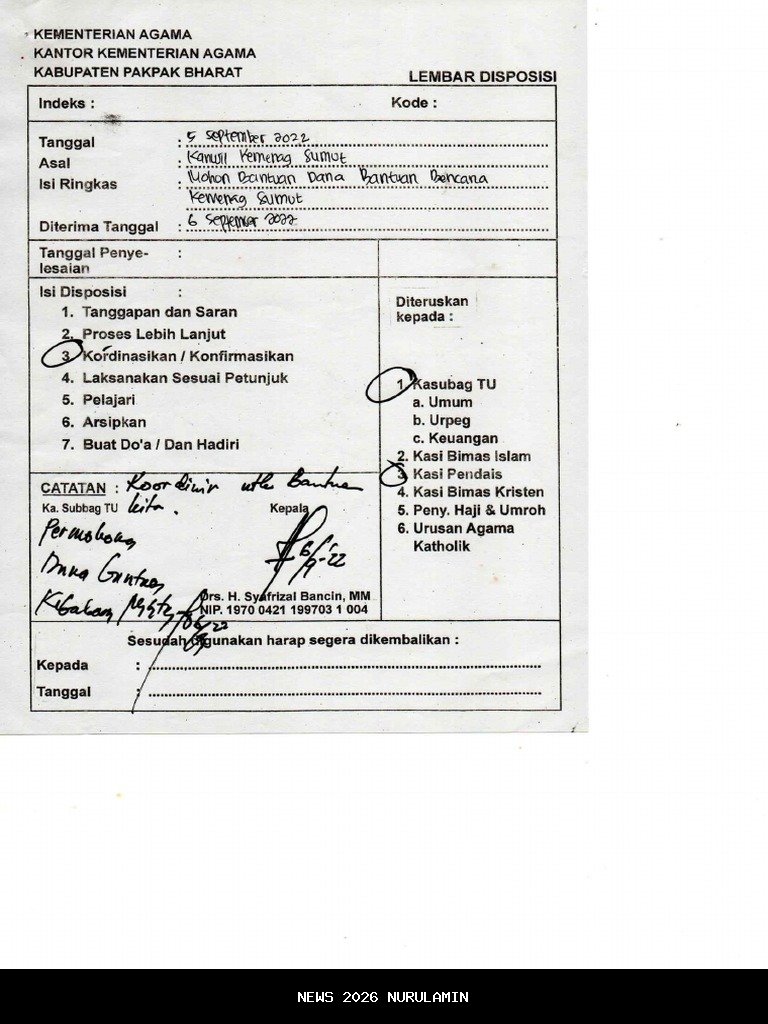 KEMENTERIAN AGAMA
KANTOR KEMENTERIAN AGAMA
KABUPATEN PAKPAK BHARAT
LEMBAR DISPOSISI
Indeks : Kode :
Tanggal : 5 September 2022
Asal : Kanwil Kemenag Sumut
Isi Ringkas : Mohon Bantuan Dana Bantuan Bencana
Kemenag Sumut
Diterima Tanggal : 6 September 2022
Tanggal Penye- :
lesaian
Isi Disposisi :
1. Tanggapan dan Saran
2. Proses Lebih Lanjut
3. Kordinasikan / Konfirmasikan
4. Laksanakan Sesuai Petunjuk
5. Pelajari
6. Arsipkan
7. Buat Do'a / Dan Hadiri
Diteruskan
kepada :
1. Kasubag TU
a. Umum
b. Urpeg
c. Keuangan
2. Kasi Bimas Islam
3. Kasi Pendais
4. Kasi Bimas Kristen
5. Peny. Haji & Umroh
6. Urusan Agama
Katholik
CATATAN : Koordinir utk Bantuan
Ka. Subbag TU kita.
Kepala
6/9-22
Drs. H. Syafrizal Bancin, MM
NIP. 1970 0421 199703 1 004
Sesudah digunakan harap segera dikembalikan :
Kepada :
Tanggal :
NEWS 2026 NURULAMIN